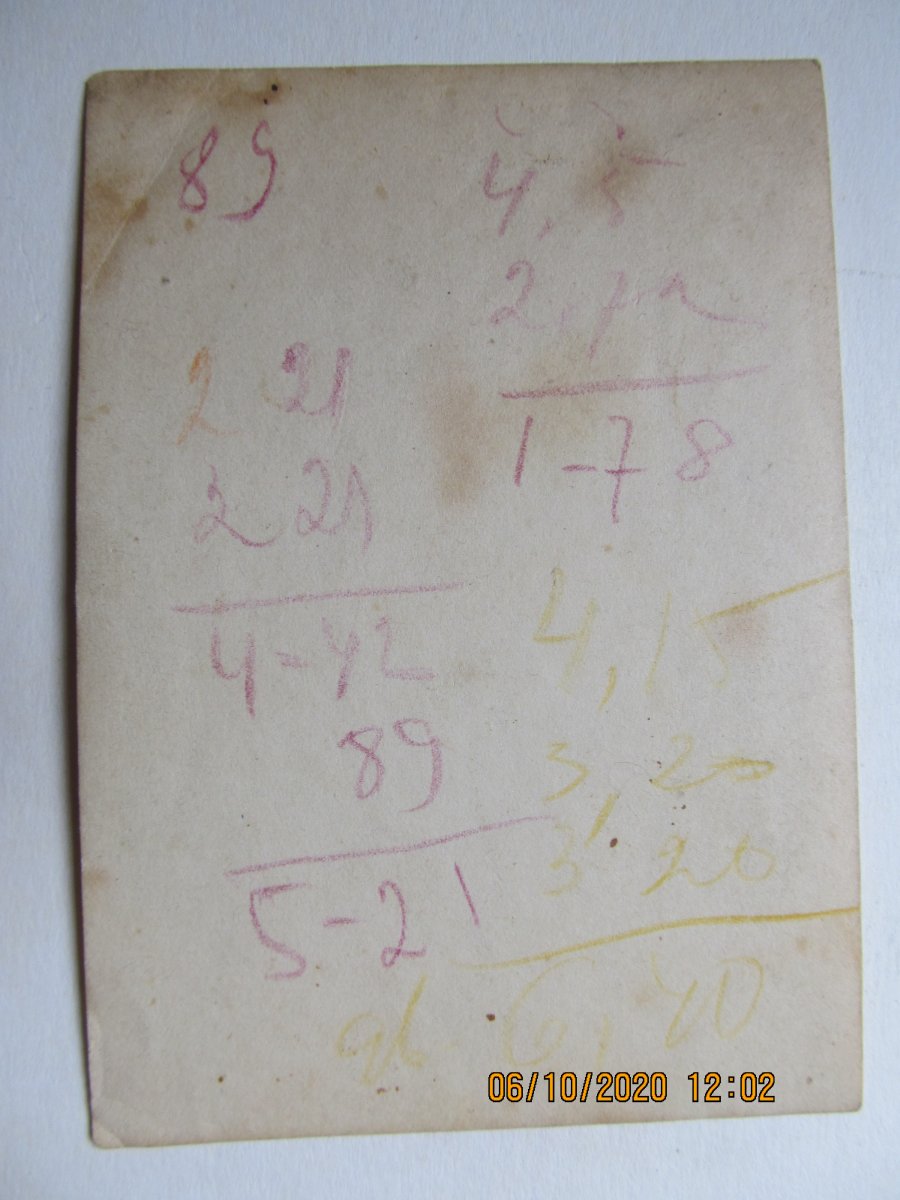 89
2 21
2 21
4-42
89
5-21
4, 5
1-78
4,15
3,20
3 20
6,40
06/10/2020 12:02